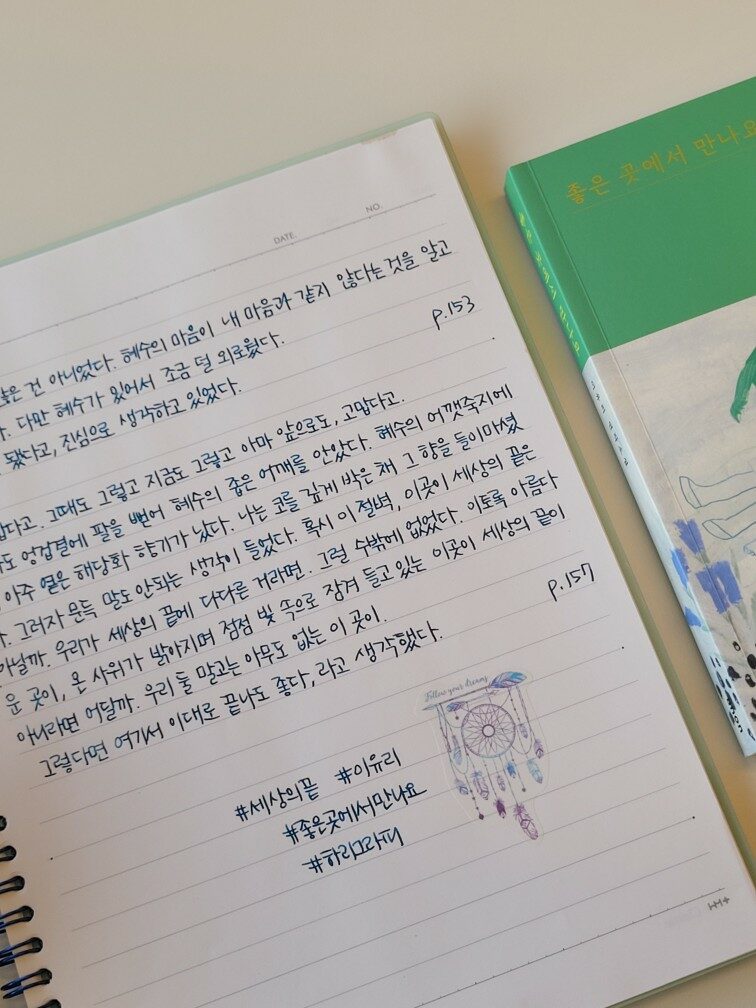 DATE. NO.
않은 건 아니었다. 혜수의 마음이 내 마음과 같지 않다는 것을 알고
다만 혜수가 있어서 조금 덜 외로웠다.
p.153
됐다고, 진심으로 생각하고 있었다.
그때도 그렇고 지금도 그렇고 아마 앞으로도, 고맙다고.
엉겁결에 팔을 뻗어 혜수의 좁은 어깨를 안았다. 혜수의 어깻죽지에
아주 옅은 해당화 향기가 났다. 나는 코를 깊게 박은 채 그 향을 들이마셨
그러자 문득 말도 안되는 생각이 들었다. 혹시 이 절벽, 이곳이 세상의 끝은
아닐까. 우리가 세상의 끝에 다다른 거라면. 그럴 수밖에 없었다. 이토록 아름다
운 곳이, 온 사위가 밝아지며 점점 빛 속으로 잠겨 들고 있는 이곳이 세상의 끝이
아니라면 어딜까. 우리 둘 말고는 아무도 없는 이 곳이.
p.157
그렇다면 여기서 이대로 끝나도 좋다, 라고 생각했다.
Follow your dreams
#세상의끝 #이유리
#좋은곳에서만나요
#하리끄라피
좋은 곳에서 만나요
좋은 곳에서 만나요